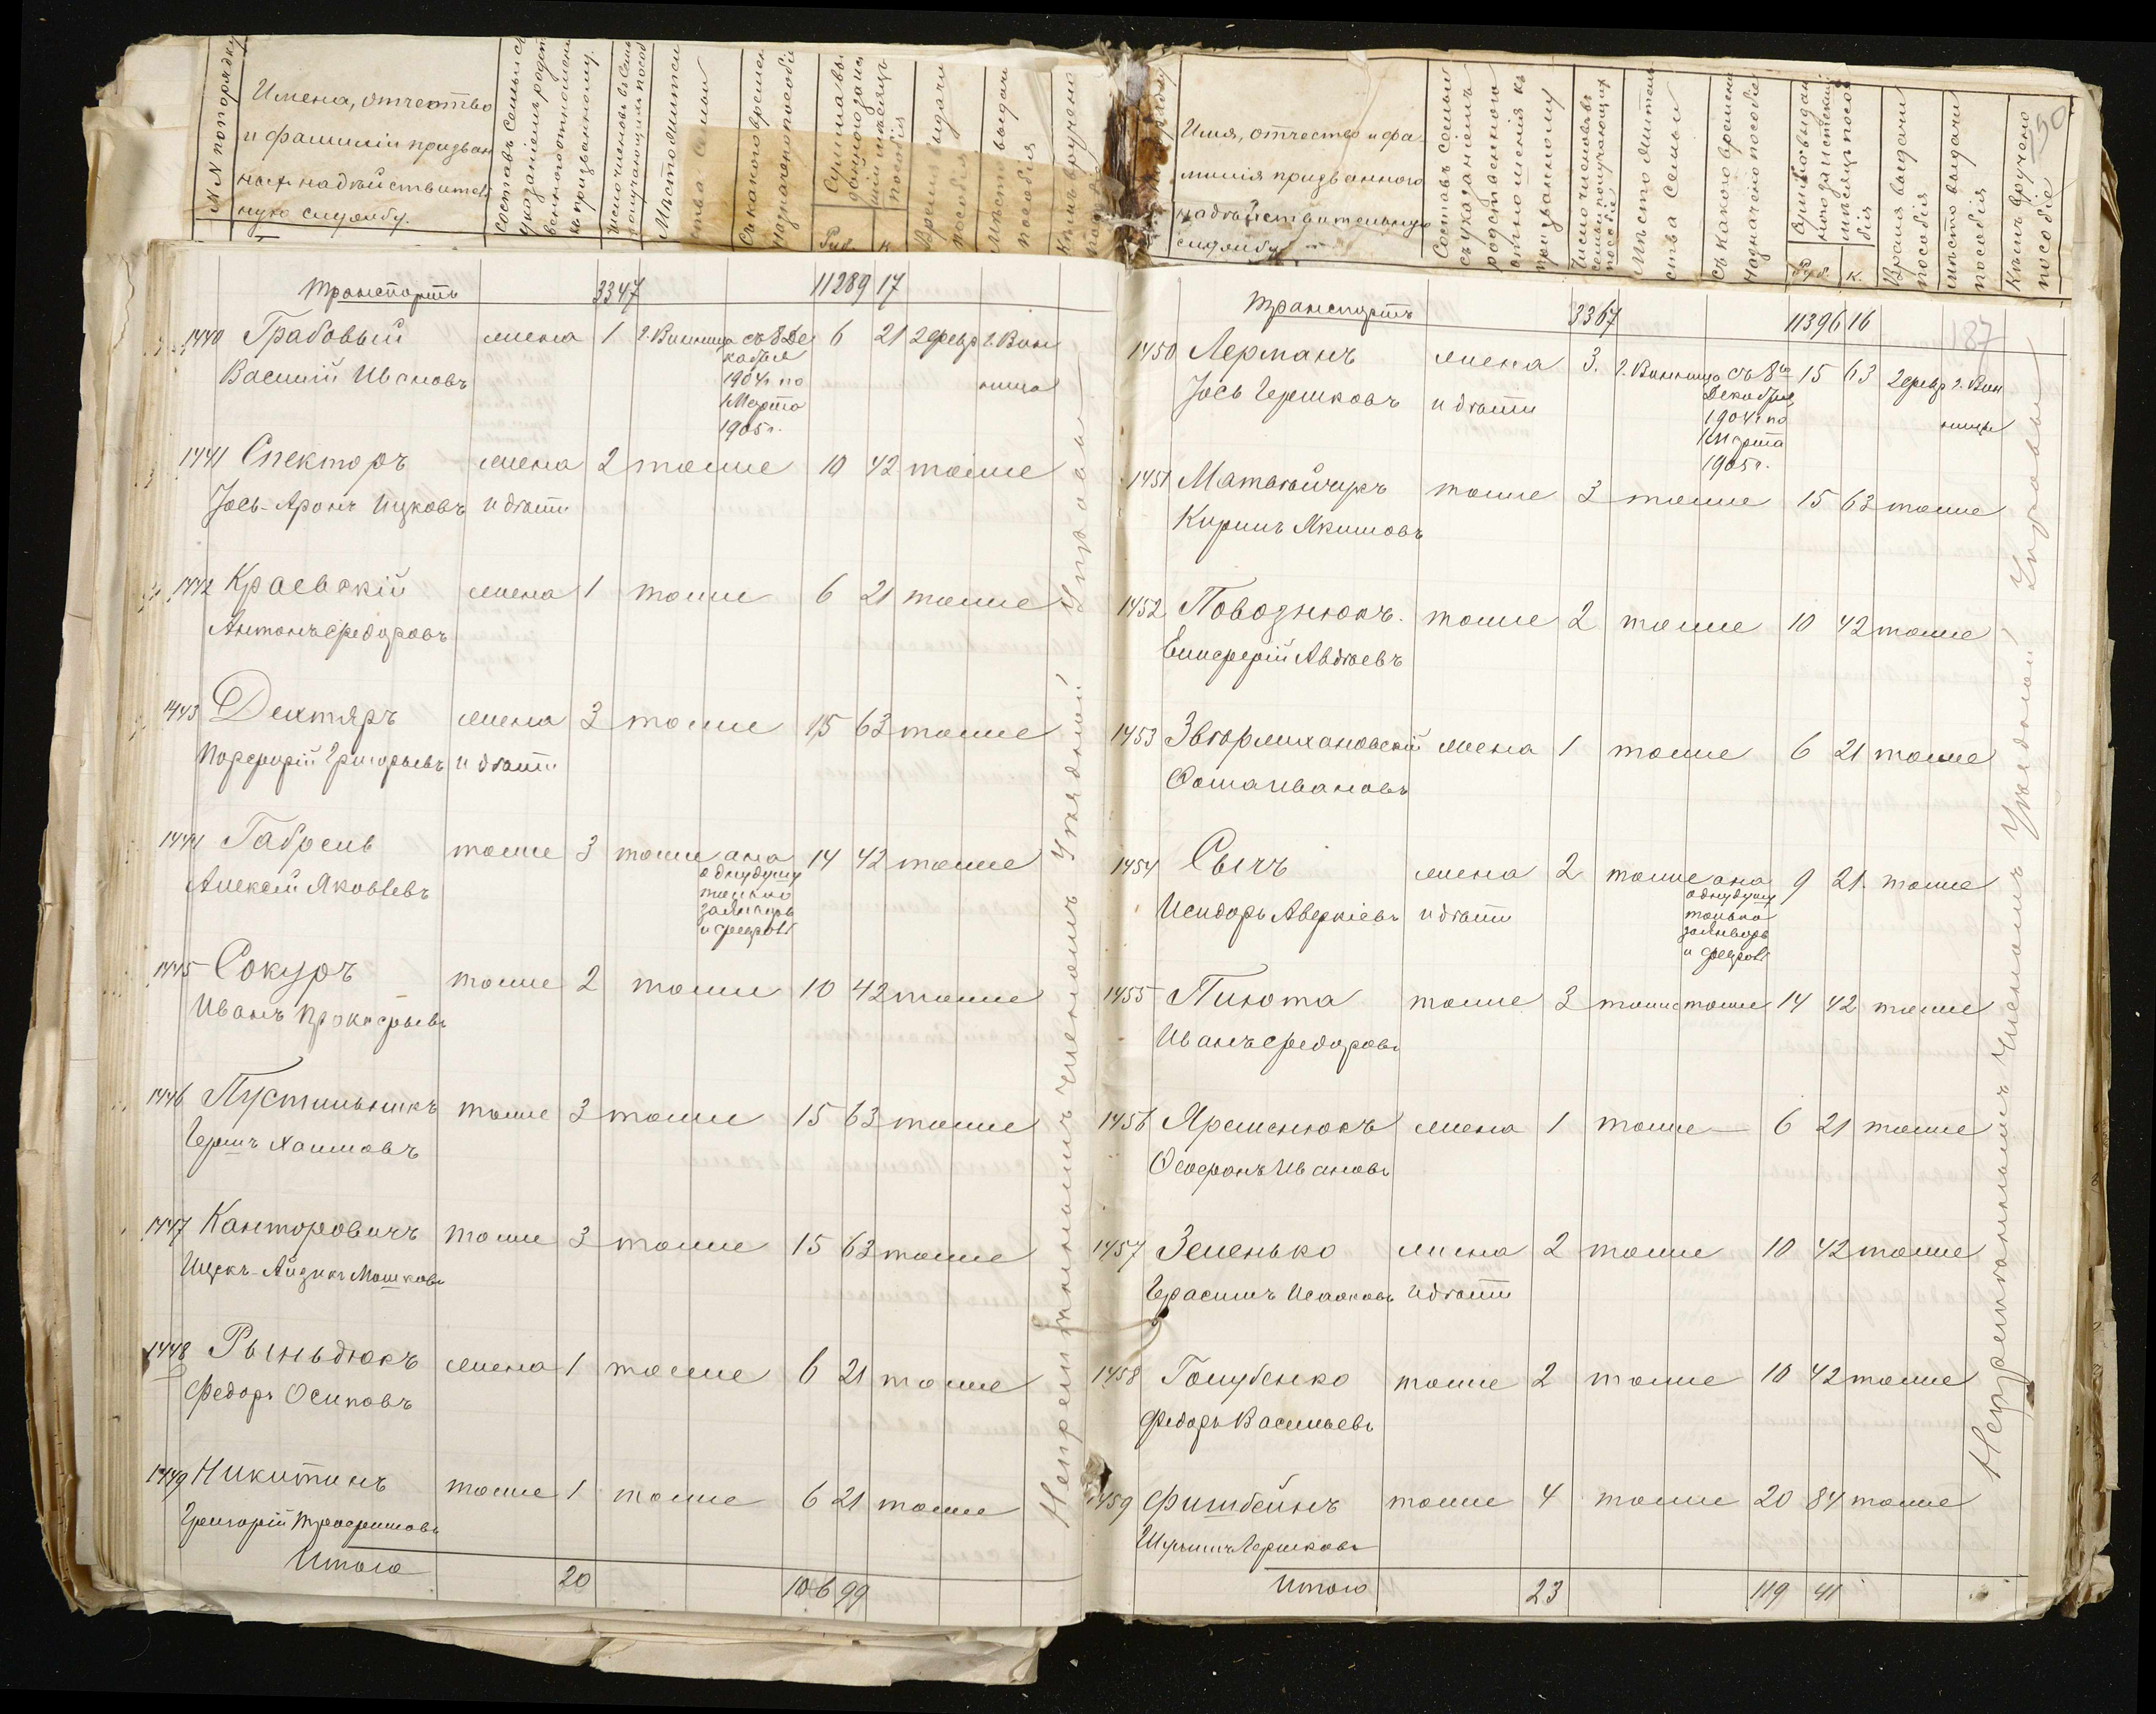 №№ по порядку
Имена, отчество
и фамиліи призван
ныхъ на действитель
ную службу.
Составъ семьи съ
указаніемъ родст
венного отношенія
къ призванному.
Число членовъ въ семье
получающихъ пособ
Место житель
ства семьи
Съ какого времени
назначено пособіе
Сумма вы
Руб. К.
Время выдачи
пособія
Место выдачи
пособія
Кемъ вручено
Транспортъ 3347 11289 17
1440 Грабовый жена 1 г. Винница съ 8 Де 6 21 2 февр г. Вин
кабря
Василій Ивановъ 1904 г. по ница
1 Марта
1905 г.
1441 Спекторъ жена 2 тоже 10 42 тоже
Іось-Аронъ Ицковъ и дѣти
1442 Краевскій жена 1 тоже 6 21 тоже
Антонъ Федоровъ
1443 Дехтяръ жена 3 тоже 15 63 тоже
Порфирій Григорьевъ и дѣти
1444 Габрель тоже 3 тоже а на 14 42 тоже
одну душу
Алексѣй Яковлевъ только
за Январь
и февраль
1445 Сокуръ тоже 2 тоже 10 42 тоже
Иванъ Прокофьевъ
1446 Пустильникъ тоже 3 тоже 15 63 тоже
Гершъ Хаимовъ
1447 Канторовичъ тоже 3 тоже 15 63 тоже
Ицекъ-Айзикъ Мошковъ
1448 Рыньдюкъ жена 1 тоже 6 21 тоже
Федоръ Осиповъ
1449 Никитинъ тоже 1 тоже 6 21 тоже
Григорій Трофимовъ
Итого 20 106 99
Непремѣннымъ членомъ Уѣздной Управы
50
Имя, отчество и фа-
милія призванного
на действительную
службу
Составъ семьи
съ указаніемъ
родственного
отношенія къ
призванному
Число членовъ въ
семьи получающихъ
пособіе
Место житель
ства семьи
Съ какого времени
назначено пособіе
Руб. К.
Время выдачи
пособія
место выдачи
пособія
Кемъ вручено
пособіе
187
Транспортъ 3367 11396 16
1450 Лерманъ жена 3. г. Винница съ 8го 15 63 2 февр г. Вин
Декабря
Іось Гершковъ и дѣти 1904 г. по ницы
1 Марта
1905 г.
1451 Матвѣйчукъ тоже 3 тоже 15 63 тоже
Кирилъ Якимовъ
1452 Повознюкъ. тоже 2 тоже 10 42 тоже
Елисферій Авдѣевъ
1453 Звѣржхановскій жена 1 тоже 6 21 тоже
Фома Ивановъ
1454 Сычъ жена 2 тоже а на 9 21 тоже
одну душу
Исидоръ Аверкіевъ и дѣти только
за Январь
и февраль
1455 Пилюта тоже 3 тоже тоже 14 42 тоже
Иванъ Федоровъ
1456 Яременюкъ жена 1 тоже 6 21 тоже
Феофанъ Ивановъ
1457 Зеленько жена 2 тоже 10 42 тоже
Герасимъ Исааковъ и дѣти
1458 Голубенко тоже 2 тоже 10 42 тоже
Федоръ Васильевъ
1459 Фишбейнъ тоже 4 тоже 20 84 тоже
Шулимъ Гершковъ
Итого 23 119 41
Непремѣннымъ членомъ Уѣздной Управы